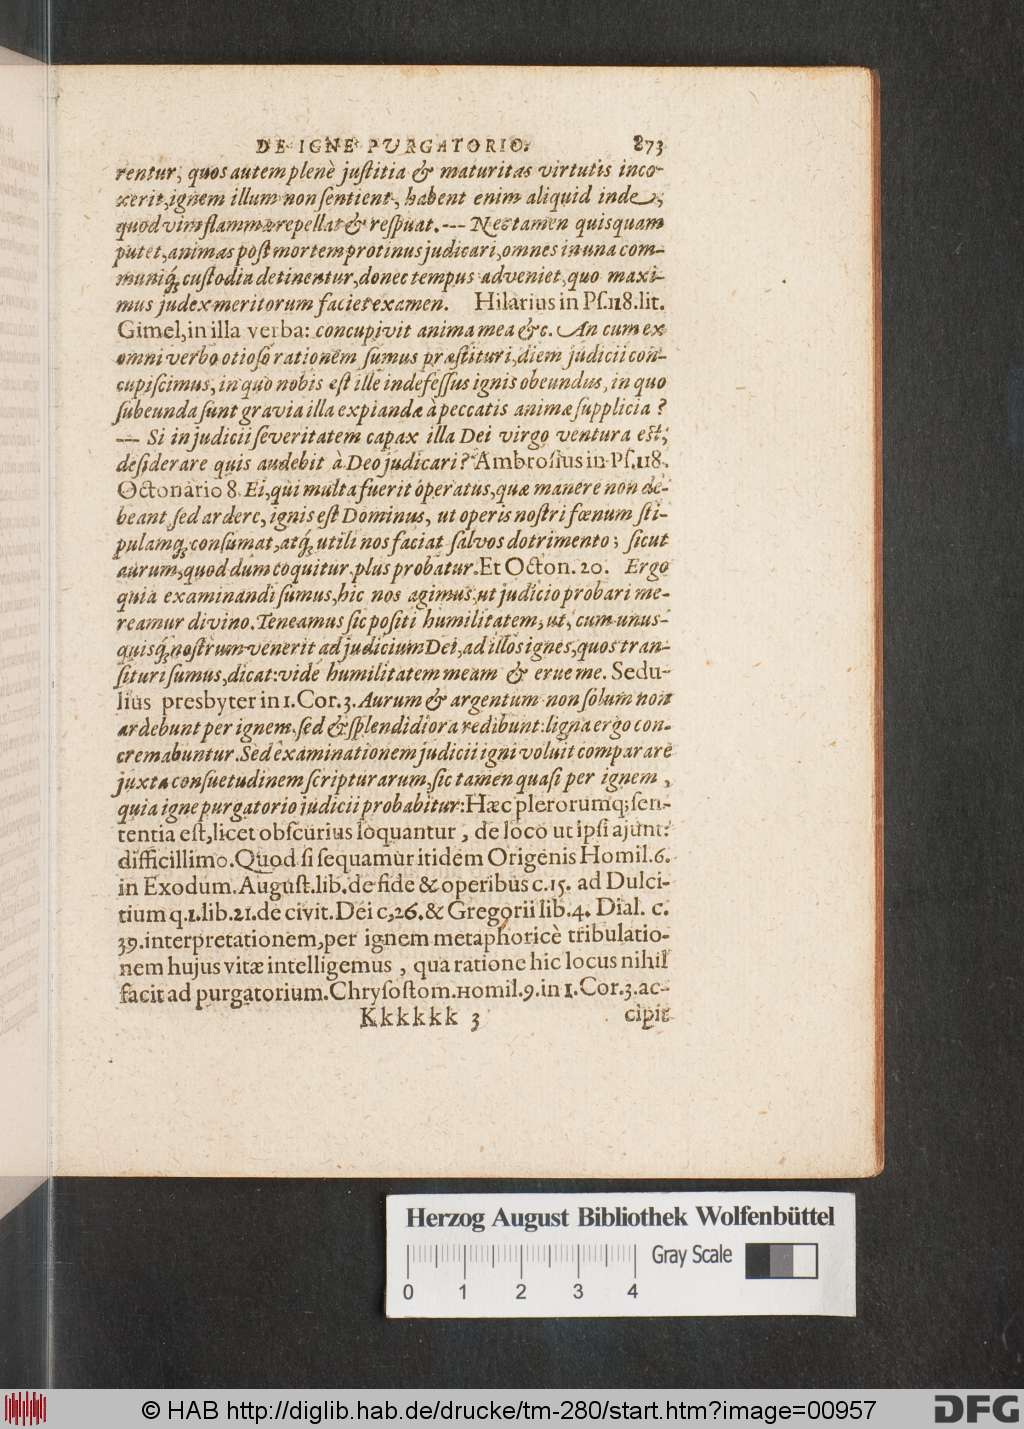 DE IGNE PURGATORIO. 873
rentur; quos autem plenè justitia & maturitas virtutis inco-
xerit, ignem illum non sentient, habent enim aliquid inde,
quod vim flammæ repellat & respuat. --- Nec tamen quisquam
putet, animas post mortem protinus judicari, omnes in una com-
muniq́; custodia detinentur, donec tempus adveniet, quo maxi-
mus judex meritorum faciet examen. Hilarius in Ps. 118. lit.
Gimel, in illa verba: concupivit anima mea &c. An cum ex
omni verbo otioso rationem sumus præstituri, diem judicii con-
cupiscimus, in quo nobis est ille indefessus ignis obeundus, in quo
subeunda sunt gravia illa expiandæ à peccatis animæ supplicia?
--- Si in judicii severitatem capax illa Dei virgo ventura est,
desiderare quis audebit à Deo judicari? Ambrosius in Ps. 118.
Octonario 8. Ei, qui multa fuerit operatus, quæ manere non de-
beant sed ardere, ignis est Dominus, ut operis nostri fœnum sti-
pulamq́; consumat, atq́; utili nos faciat salvos dotrimento; sicut
aurum, quod dum coquitur, plus probatur. Et Octon. 20. Ergo
quia examinandi sumus, hic nos agimus, ut judicio probari me-
reamur divino. Teneamus sic positi humilitatem, ut, cum unus-
quisq́; nostrum venerit ad judicium Dei, ad illos ignes, quos tran-
situri sumus, dicat: vide humilitatem meam & erue me. Sedu-
lius presbyter in 1. Cor. 3. Aurum & argentum non solum non
ardebunt per ignem, sed & splendidiora redibunt: ligna ergo con-
cremabuntur. Sed examinationem judicii igni voluit comparare
juxta consuetudinem scripturarum, sic tamen quasi per ignem,
quia igne purgatorio judicii probabitur: Hæc plerorumq; sen-
tentia est, licet obscurius loquantur, de loco ut ipsi ajunt:
difficillimo. Quod si sequamur itidem Origenis Homil. 6.
in Exodum. August. lib. de fide & operibus c. 15. ad Dulci-
tium q. 1. lib. 21. de civit. Dei c. 26. & Gregorii lib. 4. Dial. c.
39. interpretationem, per ignem metaphoricè tribulatio-
nem hujus vitæ intelligemus, qua ratione hic locus nihil
facit ad purgatorium. Chrysostom. Homil. 9. in 1. Cor. 3. ac-
Kkkkkk 3 cipit
Herzog August Bibliothek Wolfenbüttel
Gray Scale
0 1 2 3 4
© HAB http://diglib.hab.de/drucke/tm-280/start.htm?image=00957
DFG